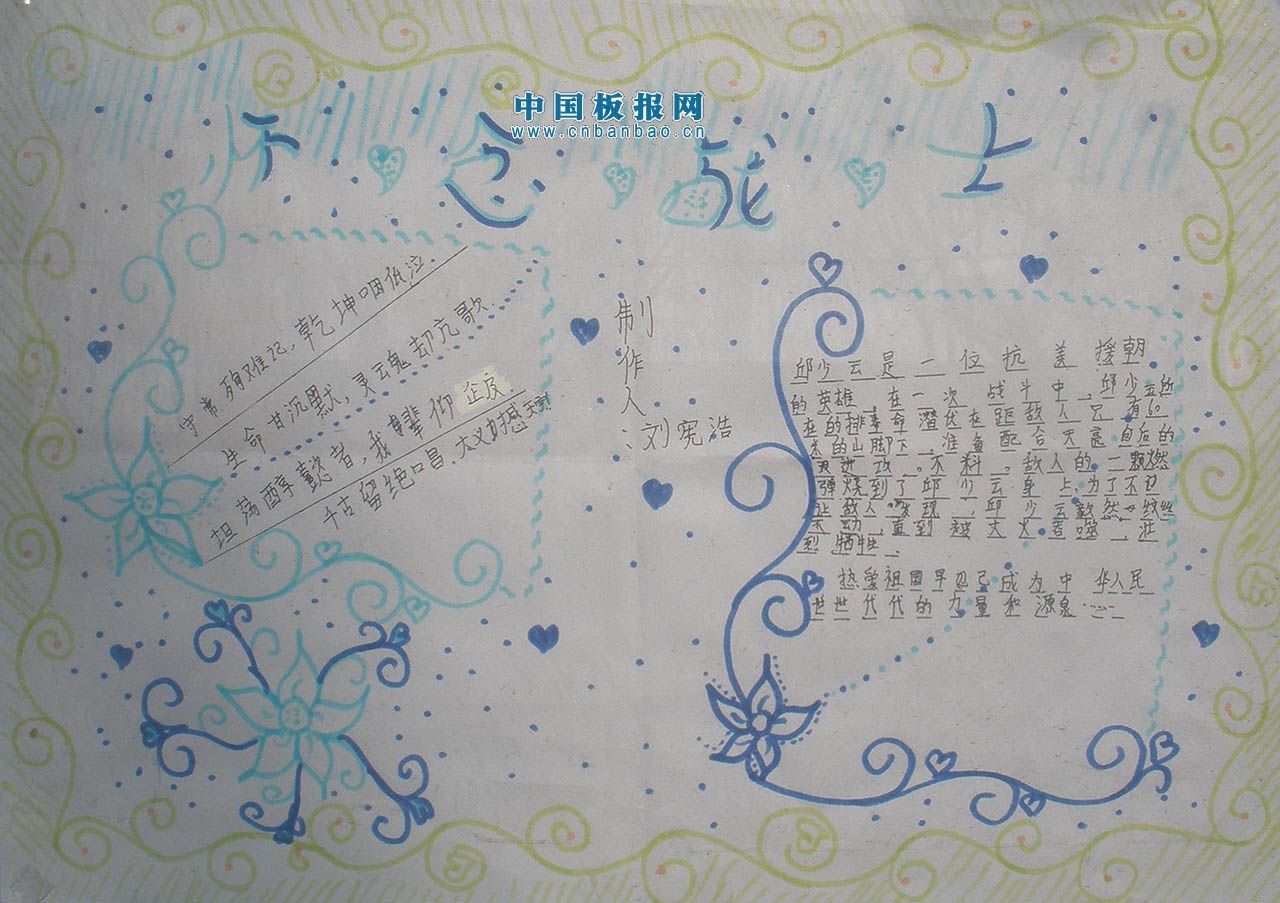 中国板报网
www.cnbanbao.cn
怀念战士
守常殉难记，乾坤咽低泣．
生命甘沉默，灵云魂却亢歌
坦荡醇懿者，我辈仰企及
千古留绝口昌，大义撼天
制作人：刘宪浩
邱少云是一位抗美援朝
的英雄，在一次战斗中，邱少云所
在的排奉命潜伏在距敌人只有60
米的山脚下，准备配合天后的
进攻。不料，敌人的一颗燃
弹烧到了邱少云身上，为了不
让敌人发现，邱少云毅然一纹丝
不动，直到被大火吞噬，壮
烈牺牲、
热爱祖国早已成为中华人民
世世代代的力量和源泉……